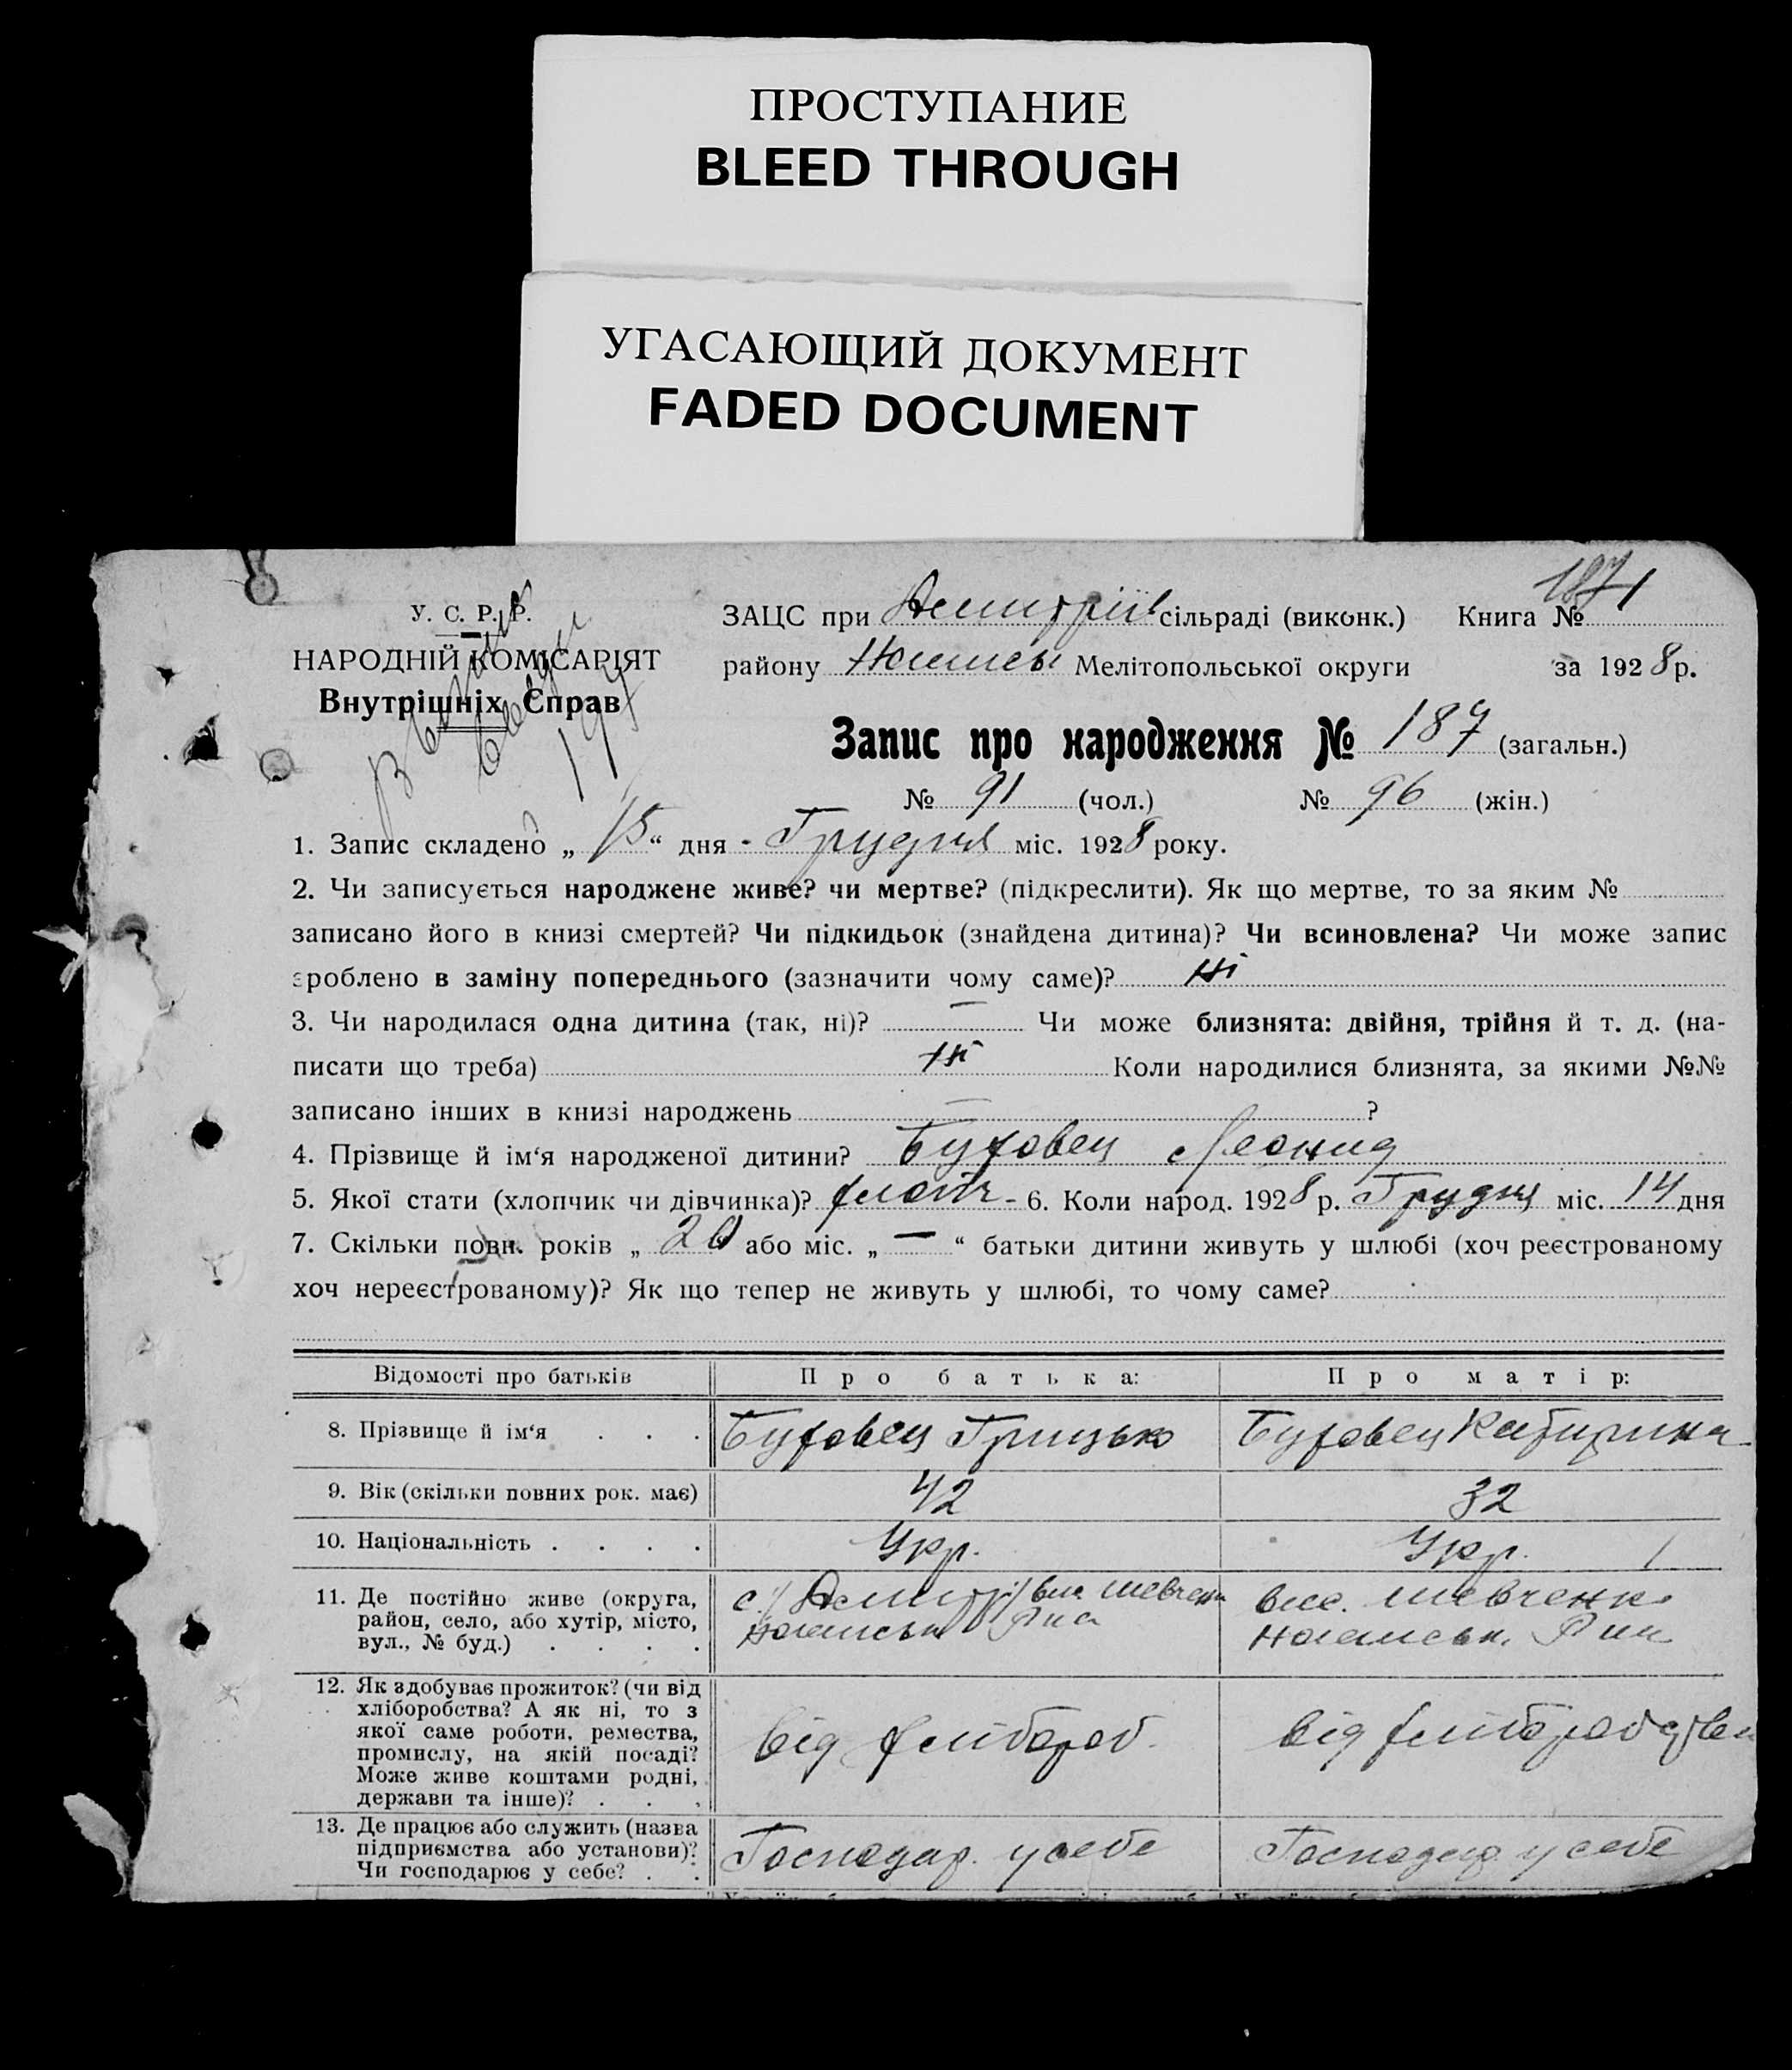 ПРОСТУПАНИЕ
BLEED THROUGH
УГАСАЮЩИЙ ДОКУМЕНТ
FADED DOCUMENT
187
У. С. Р. Р.
НАРОДНІЙ КОМІСАРІЯТ
Внутрішніх Справ
ЗАЦС при сільраді (виконк.) Книга № 1
району Мелітопольської округи за 1928 р.
Запис про народження № 187 (загальн.)
№ 91 (чол.) № 96 (жін.)
1. Запис складено „ 15 “ дня - Грудня міс. 1928 року.
2. Чи записується народжене живе? чи мертве? (підкреслити). Як що мертве, то за яким №
записано його в книзі смертей? Чи підкидьок (знайдена дитина)? Чи всиновлена? Чи може запис
зроблено в заміну попереднього (зазначити чому саме)? Ні
3. Чи народилася одна дитина (так, ні)? — Чи може близнята: двійня, трійня й т. д. (на-
писати що треба) Ні Коли народилися близнята, за якими №№
записано інших в книзі народжень — ?
4. Прізвище й ім‘я народженої дитини? Бутовец Леонид
5. Якої стати (хлопчик чи дівчинка)? хлопч - 6. Коли народ. 1928 р. Грудня міс. 14 дня
7. Скільки повн. років „ 20 або міс. „ — “ батьки дитини живуть у шлюбі (хоч реєстрованому
хоч нереєстрованому)? Як що тепер не живуть у шлюбі, то чому саме?
Відомості про батьків Про батька: Про матір:
8. Прізвище й ім‘я . . . Бутовец Грицько Бутовец Катирина
9. Вік (скільки повних рок. має) 42 32
10. Національність . . . . Укр. Укр.
11. Де постійно живе (округа,
район, село, або хутір, місто,
вул., № буд.) . . . .
с. Дмитр. вис. Шевченк
Ногайськ
вис. Шевченк
Ногайськ.
12. Як здобуває прожиток? (чи від
хліборобства? А як ні, то з
якої саме роботи, ремества,
промислу, на якій посаді?
Може живе коштами родні,
держави та інше)? . . .
від хлібороб.
від хліборобства
13. Де працює або служить (назва
підприємства або установи)?
Чи господарює у себе? . .
Господар. у себе
Господар у себе